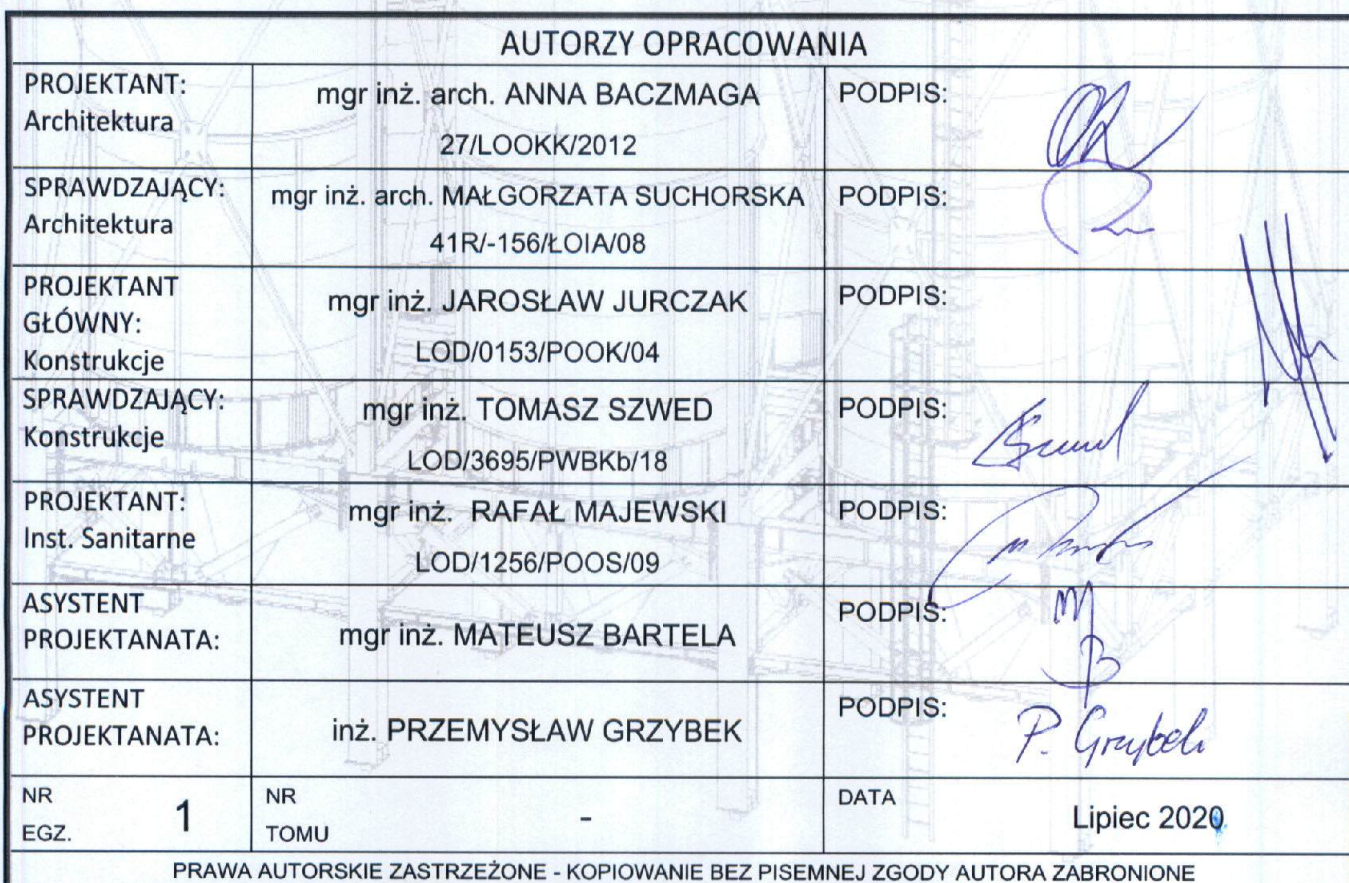 AUTORZY OPRACOWANIA
PROJEKTANT:
Architektura
mgr inż. arch. ANNA BACZMAGA
27/LOOKK/2012
PODPIS:
SPRAWDZAJĄCY:
Architektura
mgr inż. arch. MAŁGORZATA SUCHORSKA
41R/-156/ŁOIA/08
PODPIS:
PROJEKTANT
GŁÓWNY:
Konstrukcje
mgr inż. JAROSŁAW JURCZAK
LOD/0153/POOK/04
PODPIS:
SPRAWDZAJĄCY:
Konstrukcje
mgr inż. TOMASZ SZWED
LOD/3695/PWBKb/18
PODPIS:
PROJEKTANT:
Inst. Sanitarne
mgr inż. RAFAŁ MAJEWSKI
LOD/1256/POOS/09
PODPIS:
ASYSTENT
PROJEKTANATA:
mgr inż. MATEUSZ BARTELA
PODPIS:
MB
ASYSTENT
PROJEKTANATA:
inż. PRZEMYSŁAW GRZYBEK
PODPIS:
P. Grzybek
NR
EGZ.
1
NR
TOMU
-
DATA
Lipiec 2020
PRAWA AUTORSKIE ZASTRZEŻONE - KOPIOWANIE BEZ PISEMNEJ ZGODY AUTORA ZABRONIONE